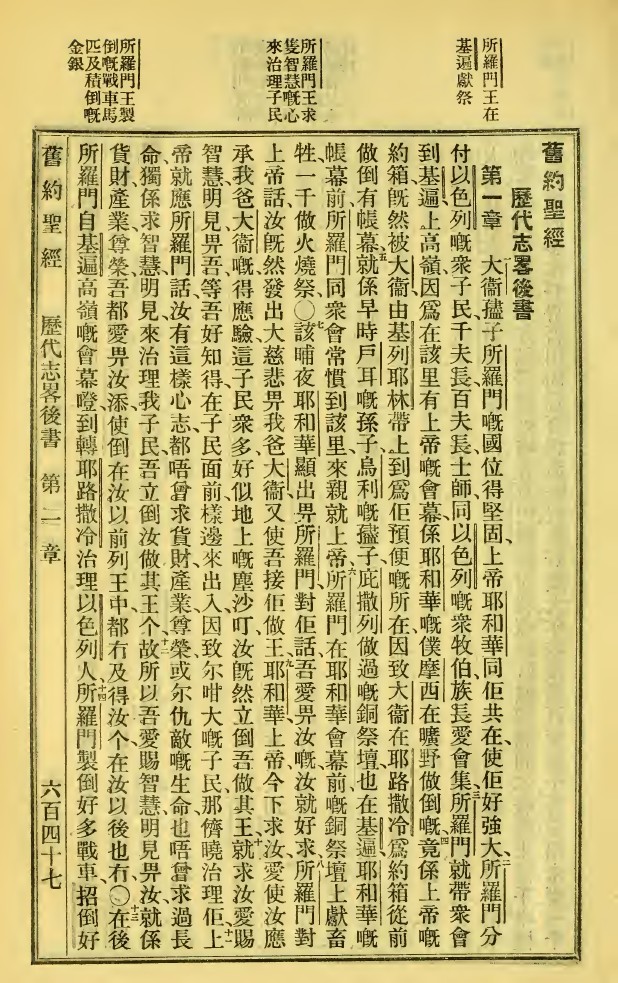 所羅門王在
基遍獻祭
所羅門王求
隻智慧嘅心
來治理子民
所羅門王製
倒嘅戰車馬
匹及積倒嘅
金銀
舊約聖經
歷代志畧後書
第一章　大衞孻子所羅門嘅國位得堅固上帝耶和華同佢共在、使佢好強大、二所羅門分
付以色列嘅衆子民千夫長百夫長士師同以色列嘅衆牧伯族長愛會集、三所羅門就帶衆會
到基遍上高嶺、因爲在該里有上帝嘅會幕、係耶和華嘅僕摩西在曠野做倒嘅、四竟係上帝嘅
約箱旣然被大衞由基列耶林帶上到爲佢預便嘅所在、因致大衞在耶路撒冷爲約箱從前
做倒有帳幕、五就係早時戶耳嘅孫子、烏利嘅孻子、庇撒列做過嘅銅祭壇也在基遍耶和華嘅
帳幕前、所羅門同衆會常慣到該里來親就上帝、六所羅門在耶和華會幕前嘅銅祭壇上獻畜
牲一千做火燒祭、〇七該晡夜耶和華顯出畀所羅門、對佢話、吾愛畀汝嘅、汝就好求、八所羅門對
上帝話、汝旣然發出大慈悲畀我爸大衞、又使吾接佢做王、九耶和華上帝今下求汝愛使汝應
承我爸大衞嘅得應驗、這子民衆多好似地上嘅塵沙叮、汝旣然立倒吾做其王、十就求汝愛賜
智慧明見畀吾、等吾好知得在子民面前樣邊來出入、因致尔咁大嘅子民、那儕曉治理佢、十一上
帝就應所羅門話、汝有這樣心志、都唔曾求貨財、產業、尊榮、或尔仇敵嘅生命、也唔曾求過長
命、獨係求智慧明見來治理我子民、吾立倒汝做其王个、十二故所以吾愛賜智慧明見畀汝、就係
貨財、產業、尊榮、吾都愛畀汝添、使倒在汝以前列王中都冇及得汝个、在汝以後也冇、〇十三在後
所羅門自基遍高嶺嘅會幕嶝到轉耶路撒冷治理以色列人、十四所羅門製倒好多戰車、招倒好
舊約聖經　歷代志畧後書　第一章　六百四十七